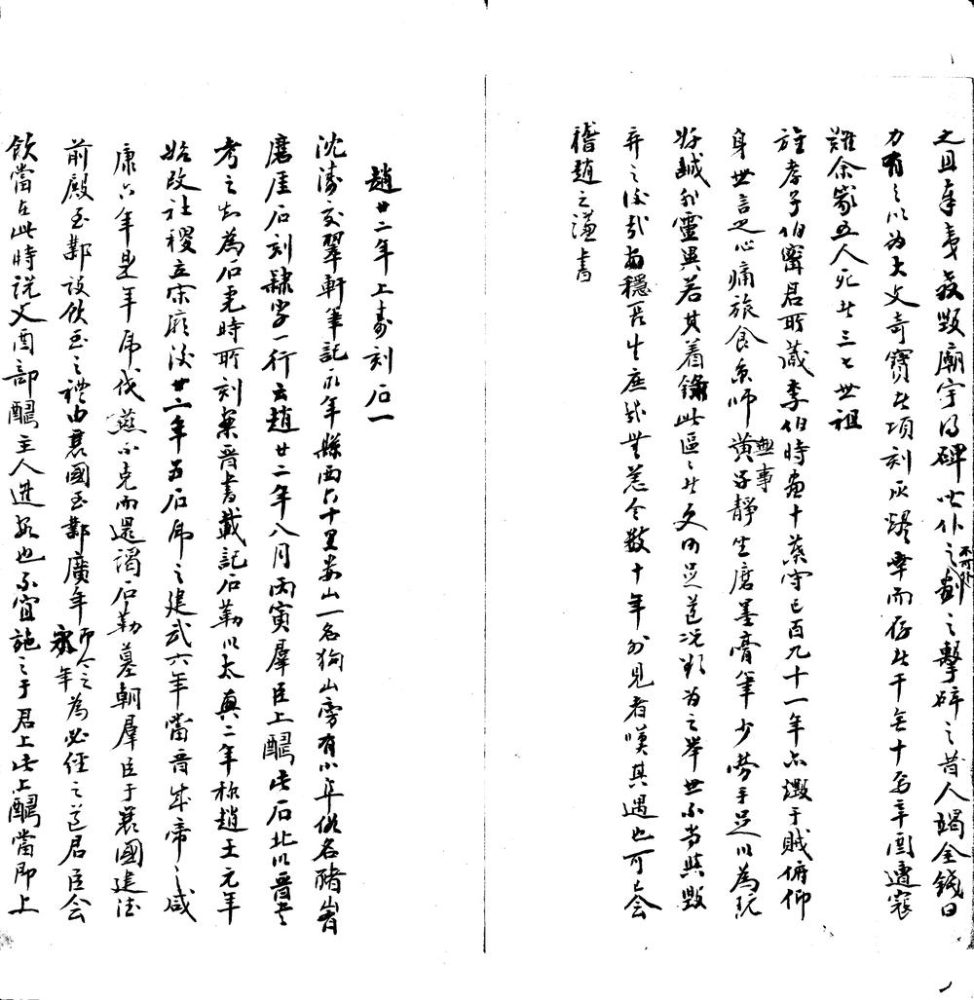 之且辜夷教毀廟宇得碑皆仆之劃之擊碎之昔人竭金錢日
不可仆
力有之以为大文奇寶者項刻灰燼幸而存者千無十焉辛酉遭寇
難余家五人死者三七世祖
旌孝子伯甯君所藏李伯時畫十葉守已百九十一年亦燬于賊俯仰
身世言之心痛旅食京師黃子靜坐磨墨膏筆少勞手足以為玩
無事
好誠非靈異若其着錄此區區者文何足道况欺為之舉世不毀
弃之後哉安穩居生庶幾無恙令數十年外見者嘆其遇也可已会
稽趙之謙書
趙廿二年上壽刻石一
沈濤交翠軒筆記永年縣西六十里婁山一名狗山旁有小阜俗名豬山有
磨崖石刻隸字一行云趙廿二年八月丙寅羣臣上醻此石北以晉書
考之知為石虎時所刻案晉書載記石勒以太興二年称趙王元年
始改社稷立宗廟後廿二年为石虎之建武六年當晉成帝之咸
康六年是年虎伐燕不克而還謁石勒墓朝羣臣于襄國建德
前殿至鄴設飲至之禮由襄國至鄴廣年即今之永年為必經之道君臣会
飲當在此時説文酉部醻主人進客也不宜施之于君上此上醻當即上